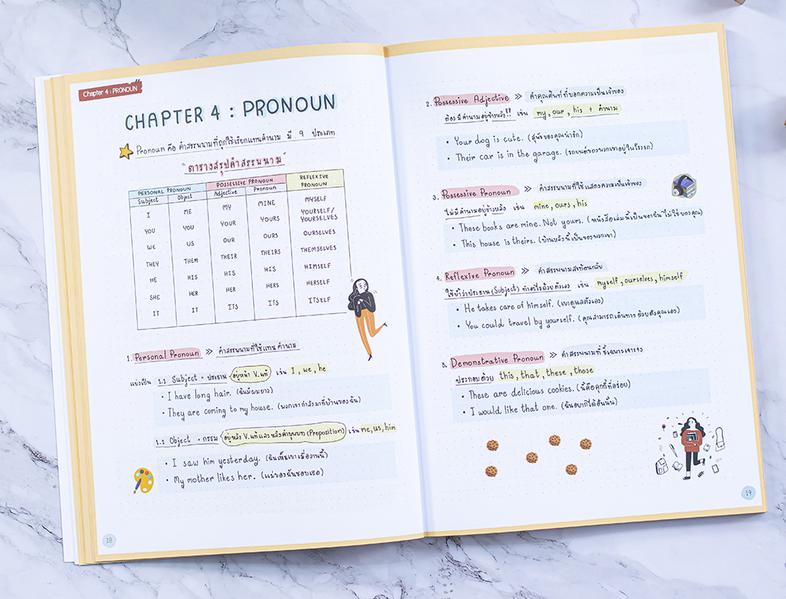 Chapter 4 : PRONOUN
CHAPTER 4 : PRONOUN
Pronoun คือ คำสรรพนามที่ถูกใช้เรียกแทนคำนาม มี 9 ประเภท
"ตารางสรุปคำสรรพนาม"
PERSONAL PRONOUN POSSESSIVE PRONOUN REFLEXIVE PRONOUN
Subject Object Adjective Pronoun
I ME MY MINE MYSELF
YOU YOU YOUR YOURS YOURSELF/ YOURSELVES
WE US OUR OURS OURSELVES
THEY THEM THEIR THEIRS THEMSELVES
HE HIS HIS HIS HIMSELF
SHE HER HER HERS HERSELF
IT IT ITS ITS ITSELF
1. Personal Pronoun >> คำสรรพนามที่ใช้แทนคำนาม
แบ่งเป็น 1.1 Subject - ประธาน อยู่หน้า V.แท้ เช่น I, we, he
• I have long hair. (ฉันมีผมยาว)
• They are coming to my house. (พวกเขากำลังมาที่บ้านของฉัน)
1.2 Object - กรรม อยู่หลัง V.แท้ และหลังคำบุพบท (Preposition) เช่น me, us, him
• I saw him yesterday. (ฉันเห็นเขาเมื่อวานนี้)
• My mother likes her. (แม่ของฉันชอบเธอ)
18
2. Possessive Adjective >> คำคุณศัพท์ที่บอกความเป็นเจ้าของ
ต้องมีคำนามอยู่ข้างหลัง!! เช่น my, our, his + คำนาม
• Your dog is cute. (สุนัขของคุณน่ารัก)
• Their car is in the garage. (รถยนต์ของพวกเขาอยู่ในโรงรถ)
3. Possessive Pronoun >> คำสรรพนามที่ใช้แสดงความเป็นเจ้าของ
ไม่มีคำนามอยู่ข้างหลัง เช่น mine, ours, his
• These books are mine. Not yours. (หนังสือเล่มนี้เป็นของฉัน ไม่ใช่ของคุณ)
• This house is theirs. (บ้านหลังนี้เป็นของพวกเขา)
4. Reflexive Pronoun >> คำสรรพนามสะท้อนกลับ
ใช้ย้ำว่าประธาน (Subject) ทำอะไรด้วยตัวเอง เช่น myself, ourselves, himself
• He takes care of himself. (เขาดูแลตัวเอง)
• You could travel by yourself. (คุณสามารถเดินทางด้วยตัวคุณเอง)
5. Demonstrative Pronoun >> คำสรรพนามที่ชี้เฉพาะเจาะจง
ประกอบด้วย this, that, these, those
• These are delicious cookies. (นี่คือคุกกี้ที่อร่อย)
• I would like that one. (ฉันอยากได้อันนั้น)
19